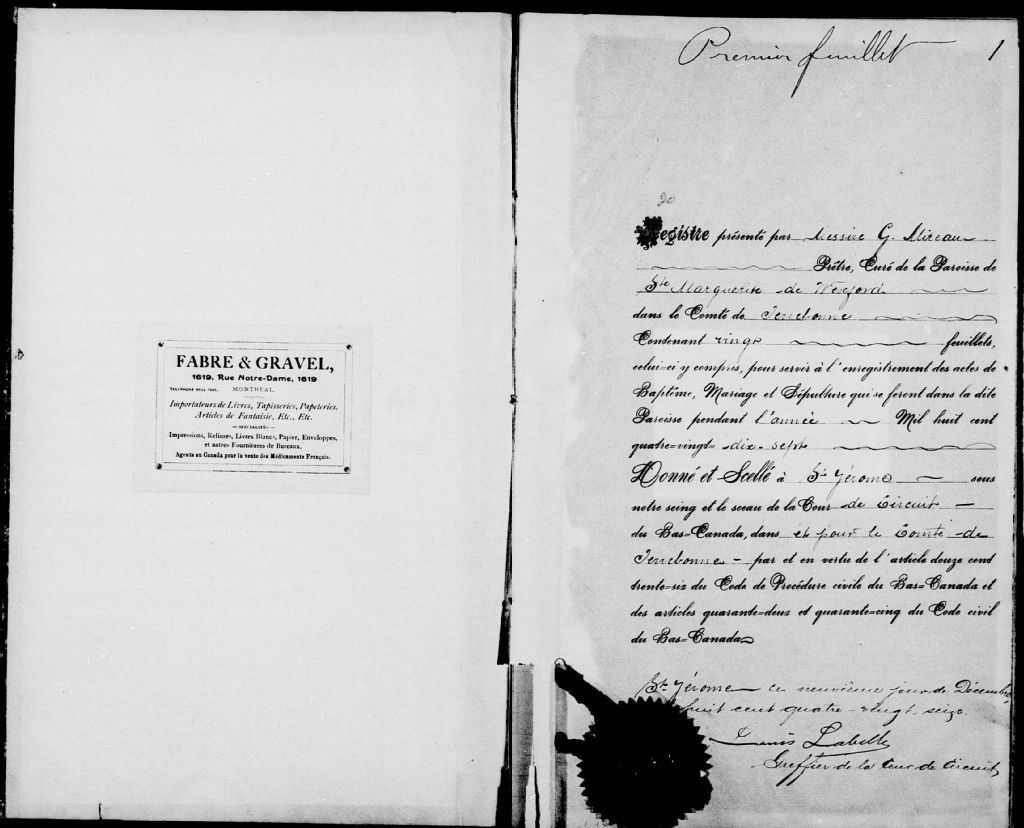 FABRE & GRAVEL,
1619, Rue Notre-Dame, 1619
MONTREAL.
Importateurs de Livres, Tapisseries, Papeteries,
Articles de Fantaisie, Etc., Etc.
—SPÉCIALITÉS—
Impressions, Reliures, Livres Blancs, Papier, Enveloppes,
et autres Fournitures de Bureaux.
Agents au Canada pour la vente des Médicaments Français.
Premier feuillet 1
20
Registre présenté par Messire G. Mireau
Prêtre, Curé de la Paroisse de
Ste Marguerite de Wexford
dans le Comté de Terrebonne
Contenant vingt feuillets,
celui-ci y compris, pour servir à l'enregistrement des actes de
Baptême, Mariage et Sépulture qui se feront dans la dite
Paroisse pendant l'année Mil huit cent
quatre-vingt-dix-sept
Donné et Scellé à St Jérome sous
notre seing et le sceau de la Cour de Circuit
du Bas-Canada, dans et pour le Comté de
Terrebonne - par et en vertu de l'article douze cent
trente-six du Code de Procédure civile du Bas-Canada et
des articles quarante-deux et quarante-cinq du Code civil
du Bas-Canada
St Jérome ce neuvième jour de Décembre
huit cent quatre-vingt-seize.
Louis Labelle
Greffier de la Cour de Circuit